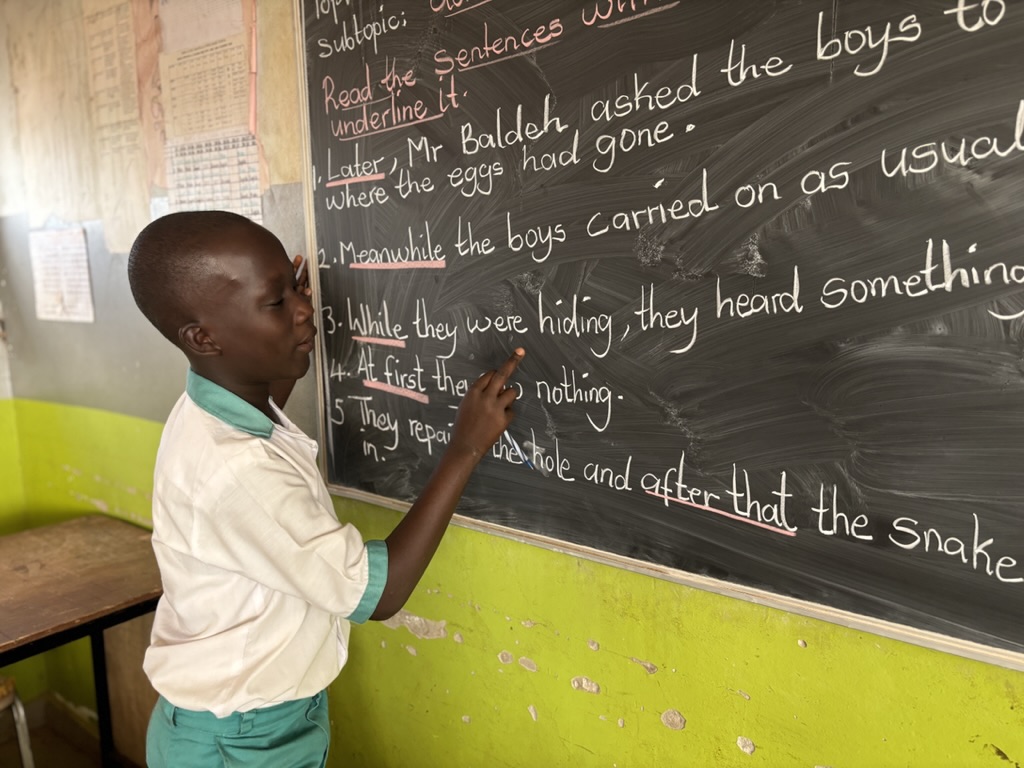 Subtopic:
Read the Sentences
underline it.
1. Later, Mr Baldeh asked the boys to
where the eggs had gone.
2. Meanwhile the boys carried on as usual
3. While they were hiding, they heard something
4. At first nothing.
5 They hole and after that the snake
in.